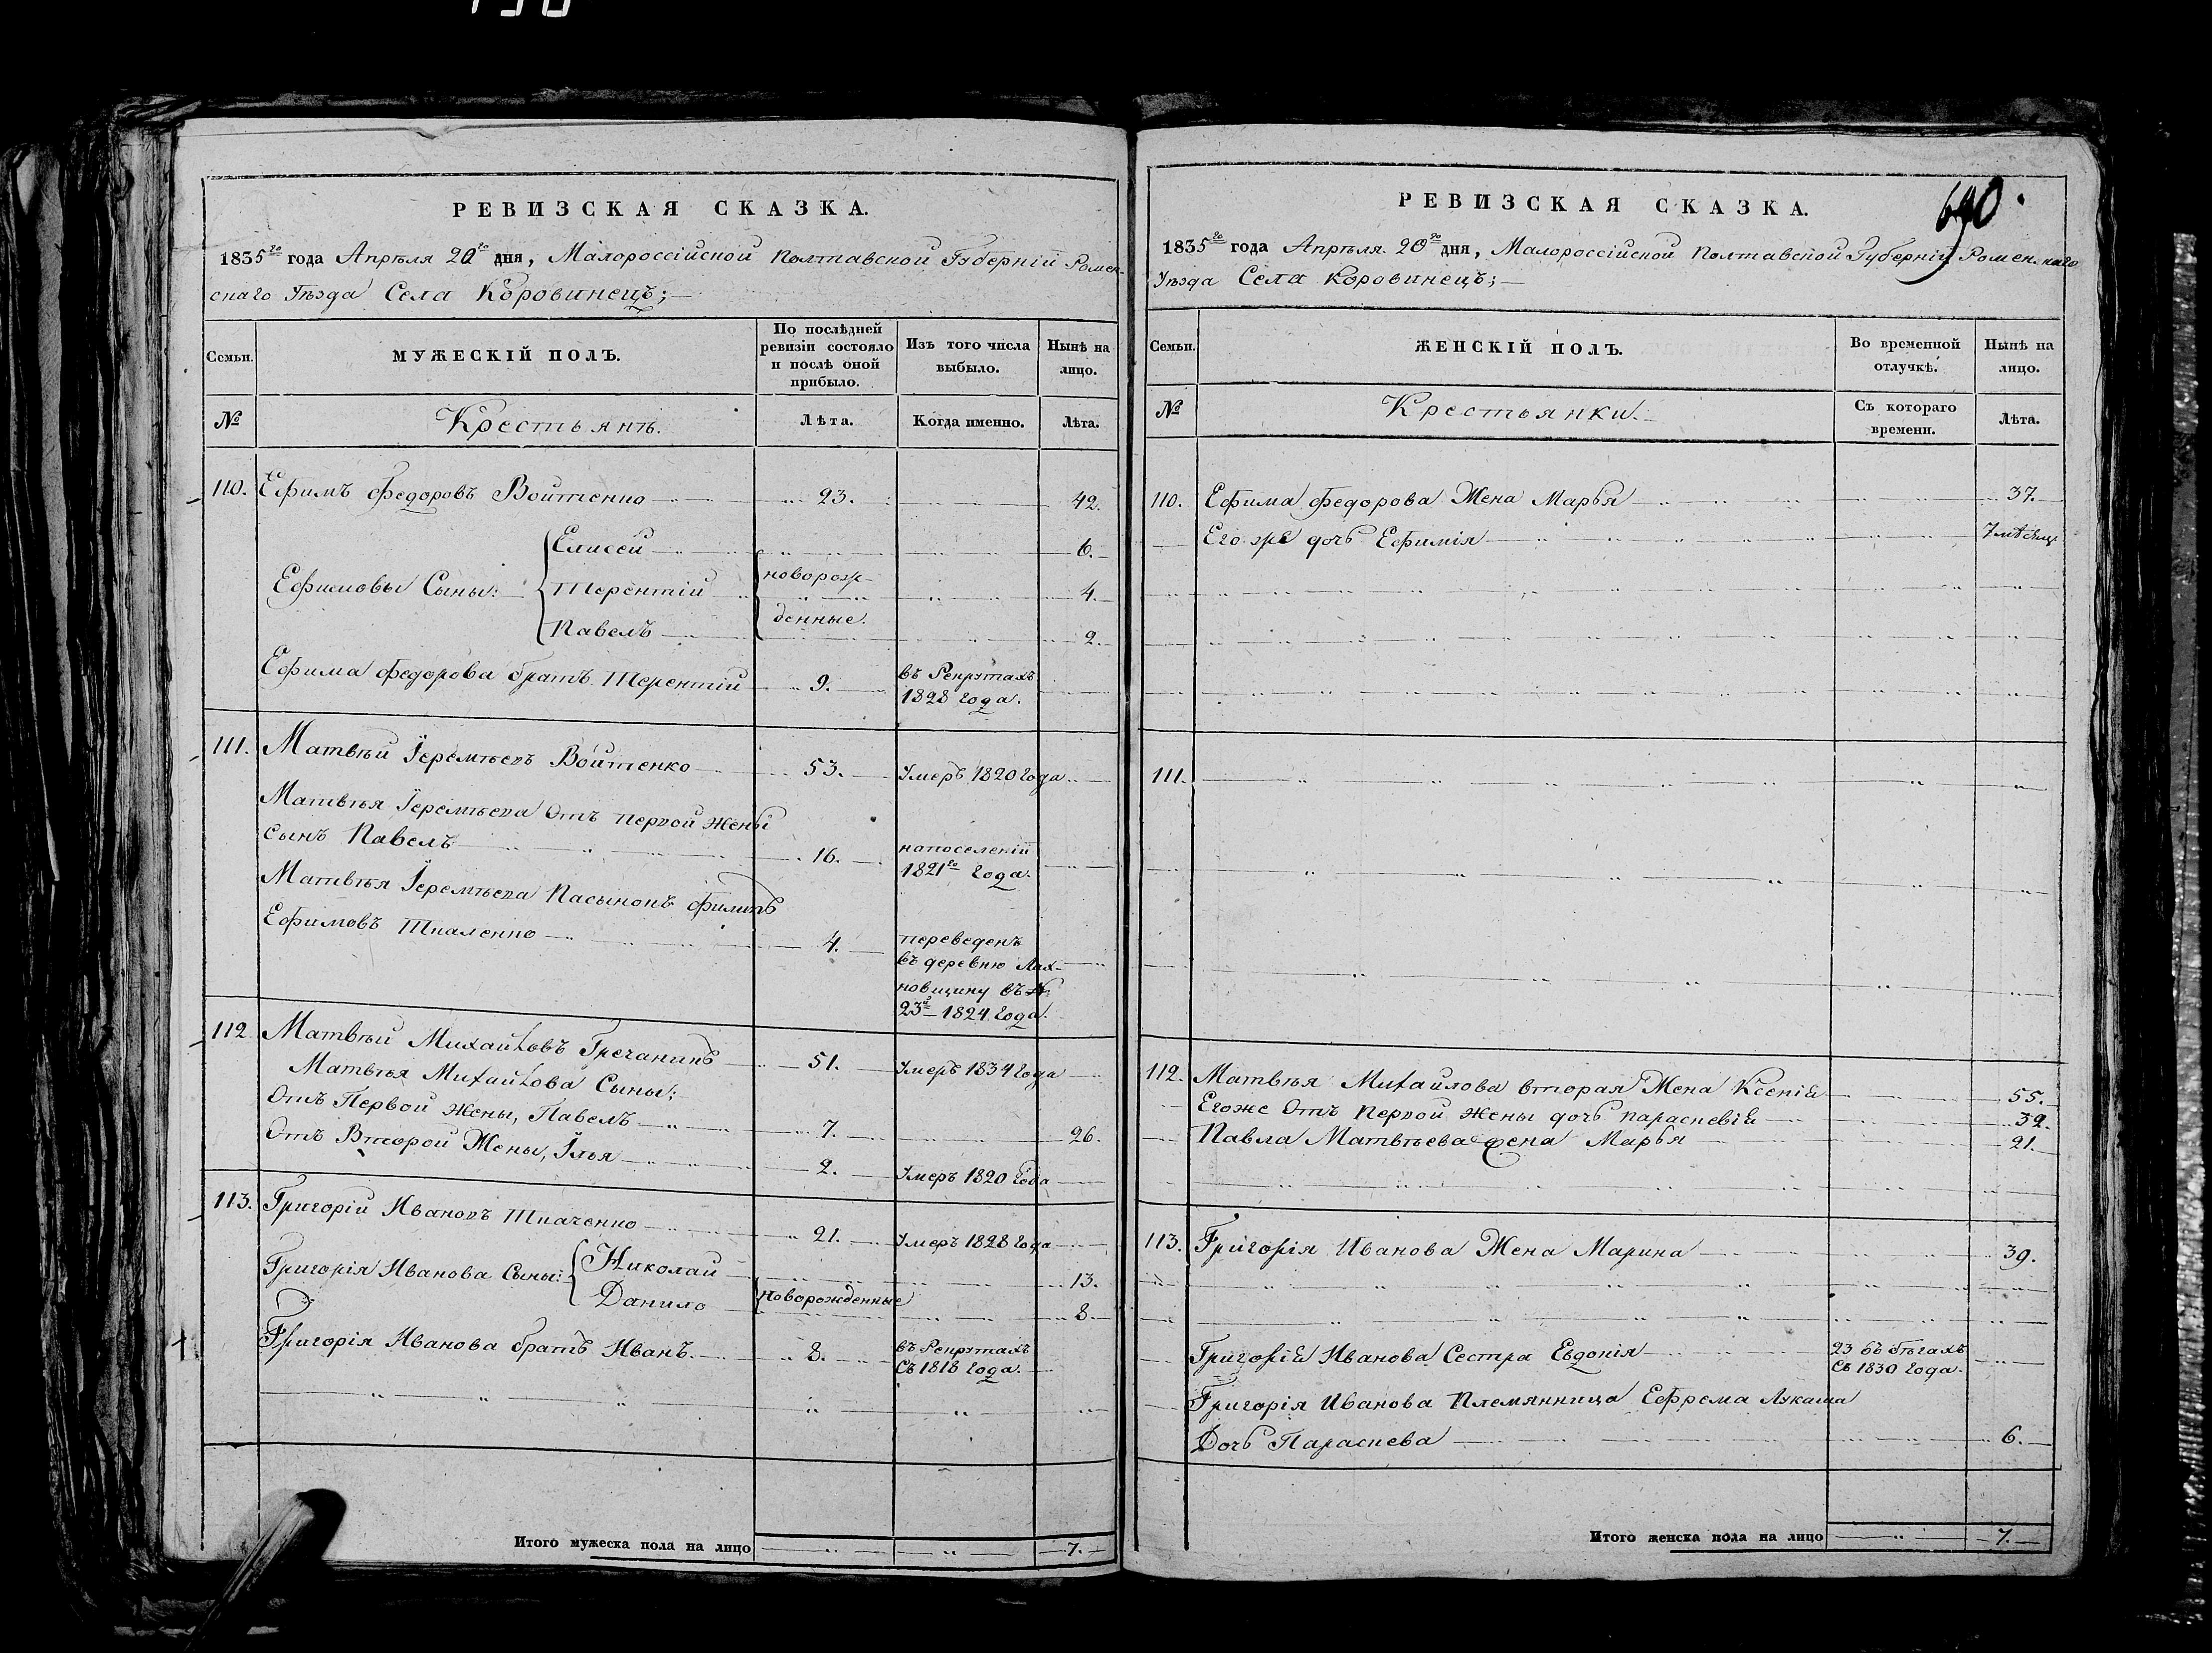 РЕВИЗСКАЯ СКАЗКА.
1835го года Апрѣля 20го дня, Малороссійской Полтавской Губерніи Ромен-
скаго Уѣзда Села Коровинецъ;
Семьи.
МУЖЕСКІЙ ПОЛЪ.
По послѣдней ревизіи состояло и послѣ оной прибыло.
Изъ того числа выбыло.
Нынѣ на лицо.
№
Крестьянѣ.
Лѣта.
Когда именно.
Лѣта.
110. Ефимъ Федоровъ Войтенко 23. 42.
Елисей 6.
Ефимовы Сыны: Терентій новорож- 4.
денные.
Павелъ 2.
Ефима Федорова братъ Терентій 9. въ Рекрутахъ
1828 года.
111. Матвѣй Іеремѣевъ Войтенко 53. Умеръ 1820 года
Матвѣя Іеремѣева Отъ первой жены
Сынъ Павелъ 16. напоселеніи
1821го года.
Матвѣя Іеремѣева Пасынокъ Филипъ
Ефимовъ 4. переведенъ
въ деревню Лах-
новщину въ №
23й 1824 года.
112. Матвѣй Михайловъ Гречанинъ 51. Умеръ 1834 года
Матвѣя Михайлова Сыны:
Отъ Первой жены, Павелъ 7. 26.
Отъ Второй Жены, Илья 2. Умеръ 1820 года
113. Григорій Ивановъ Ткаченко 21. Умеръ 1828 года
Григорія Иванова Сыны: Николай 13.
Данило новорожденные 8.
Григорія Иванова братъ Иванъ. 8. въ Рекрутахъ
Съ 1818 года.
Итого мужеска пола на лицо 7.
690.
РЕВИЗСКАЯ СКАЗКА.
1835го года Апрѣля 20го дня, Малороссійской Полтавской Губерніи Роменскаго
Уѣзда Села Коровинецъ;
Семьи.
ЖЕНСКІЙ ПОЛЪ.
Во временной отлучкѣ.
Нынѣ на лицо.
№
Крестьянки.
Съ котораго времени.
Лѣта.
110. Ефима Федорова Жена Марья 37.
Его же дочь Ефимія 7 мѣсяц.
111.
112. Матвѣя Михайлова вторая Жена Ксенія 55.
Егоже Отъ первой жены дочь Параскевія 32.
Павла Матвѣева жена Марья 21.
113. Григорія Иванова Жена Марина 39.
Григорія Иванова Сестра Евдокія 23 въ бѣгахъ
Съ 1830 года.
Григорія Иванова Племянница Ефрема Лукаша
Дочь Параскева 6.
Итого женска пола на лицо 7.